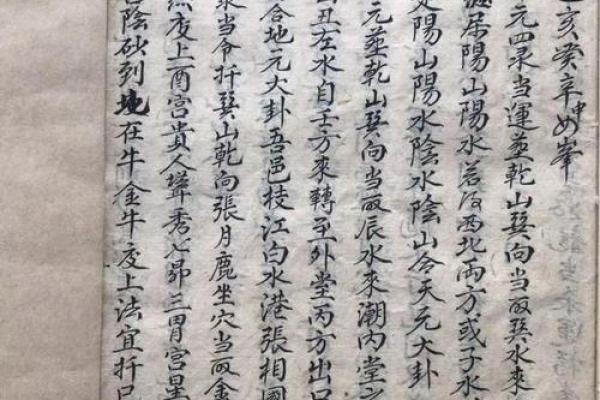 亥癸辛如峯
元四录当運塟乾山巽向当取巽水來
居陽山陽水若后西北两方或子水
陽山陽水陰水陰山合天元大卦
元塟乾山巽向当取辰水來潮内堂之
丑左水自壬方來轉至外堂丙方出口
合地元大卦吾邑枝江白水港張相國
录当令扦巽山乾向張月鹿坐穴当取金
度上酉宮貴人聳秀七昴三胃宮星
陰砂到地在牛金牛度上法宜扦